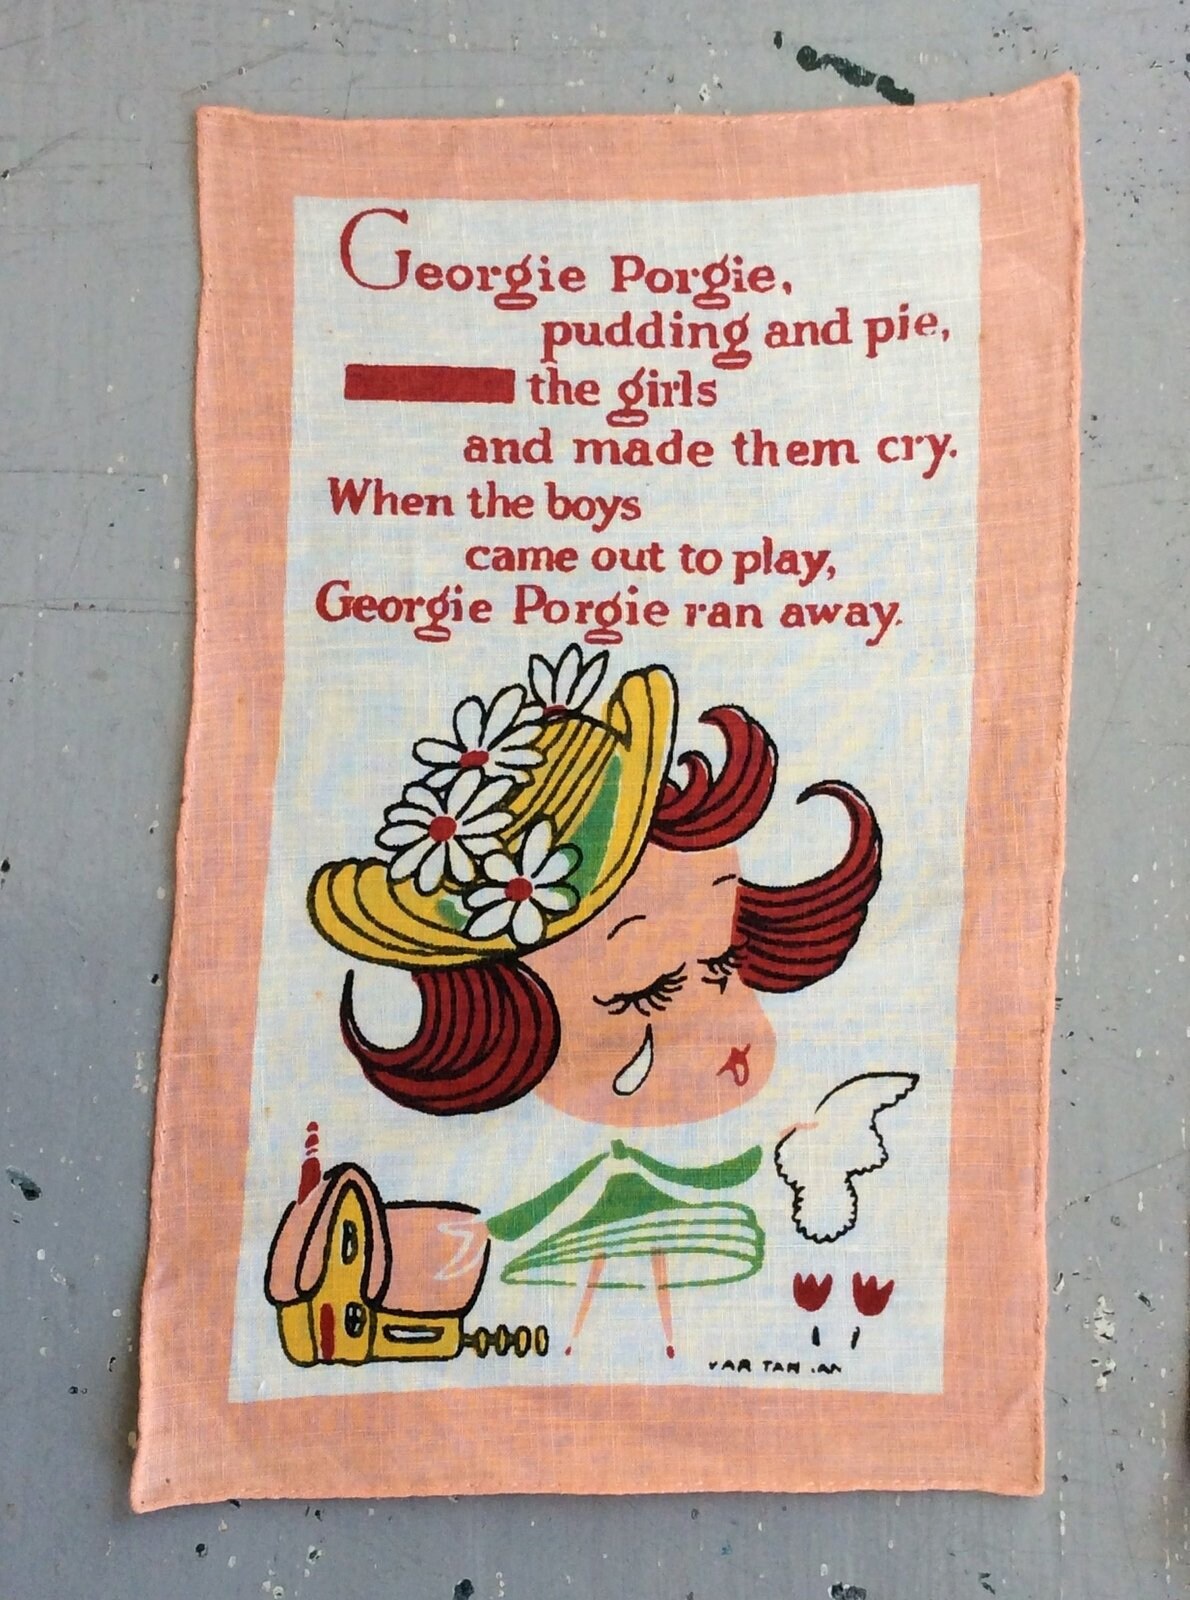 Georgie Porgie,
pudding and pie,
the girls
and made them cry.
When the boys
came out to play,
Georgie Porgie ran away.
VARTANIAN